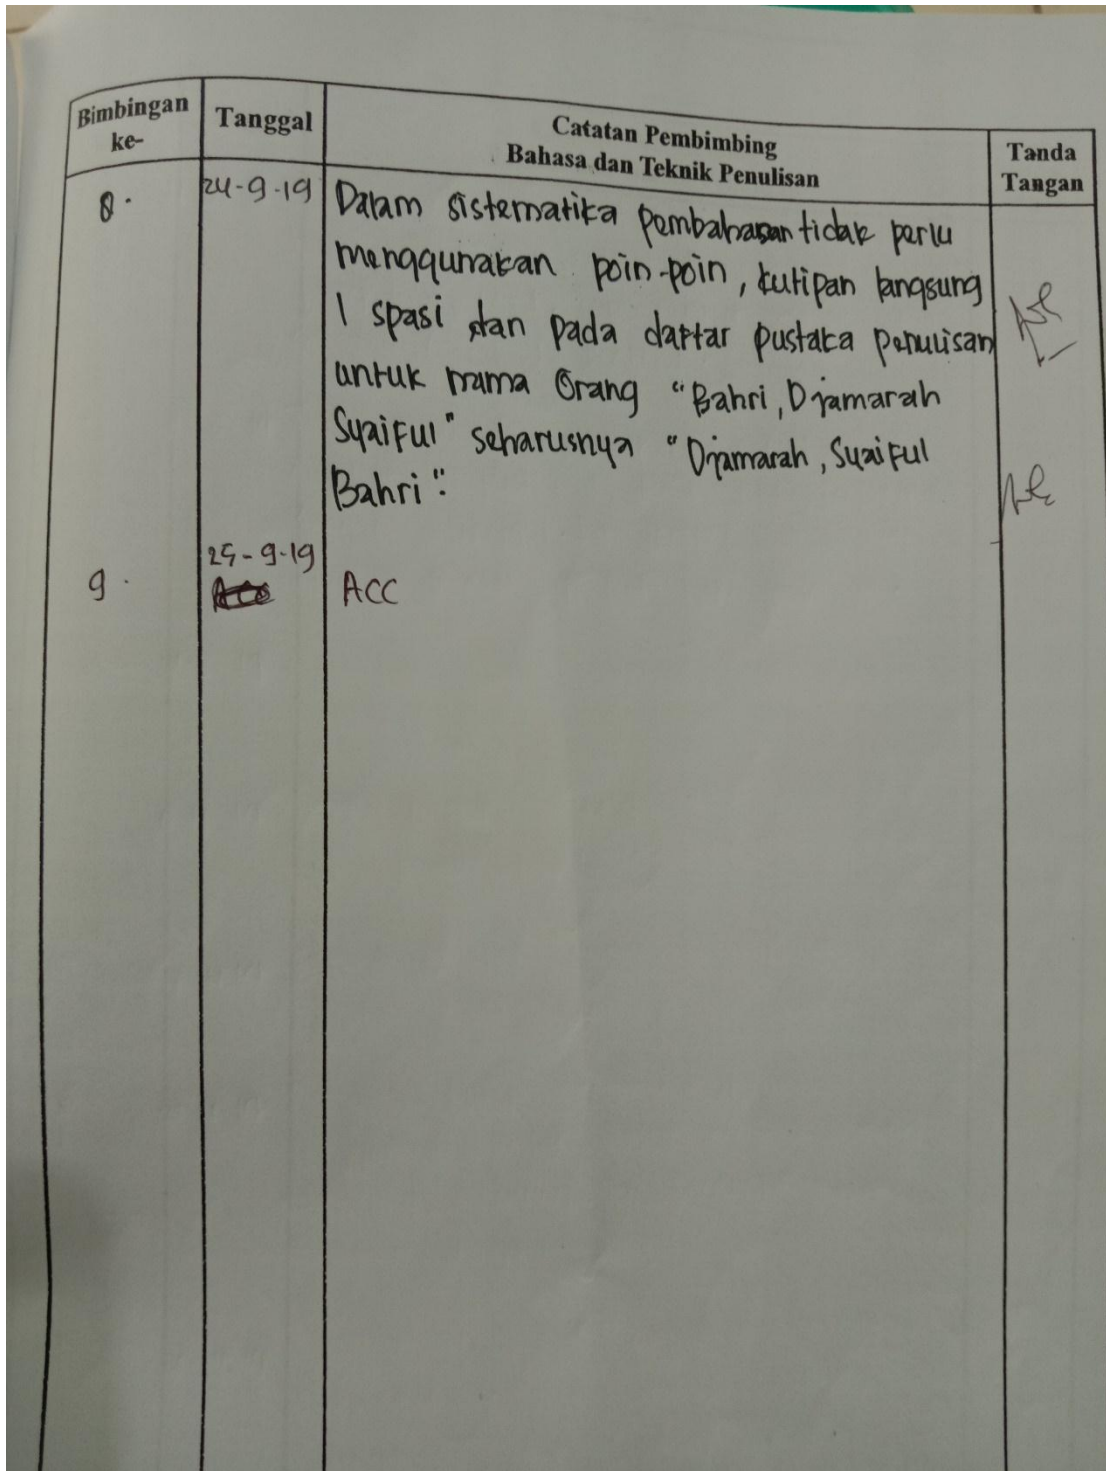 Bimbingan ke-
Tanggal
Catatan Pembimbing
Bahasa dan Teknik Penulisan
Tanda Tangan
8.
24-9-19
Dalam sistematika pembahasan tidak perlu
menggunakan poin-poin, kutipan langsung
1 spasi dan pada daftar pustaka penulisan
untuk nama Orang "Bahri, Djamarah
Syaiful" seharusnya "Djamarah, Syaiful
Bahri".
9.
25-9-19
ACC